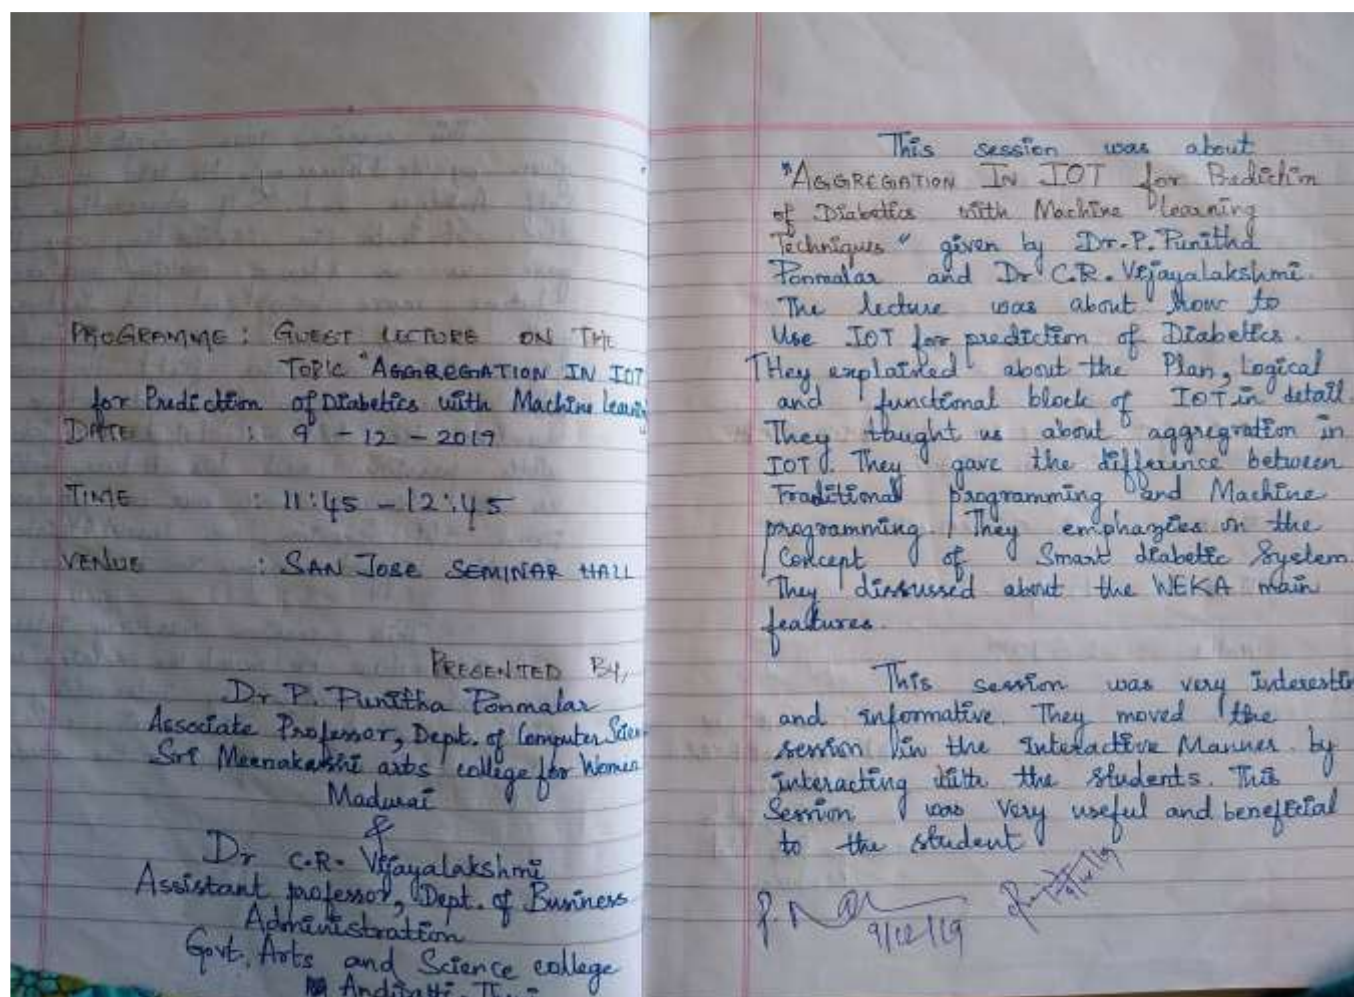 PROGRAMME : GUEST LECTURE ON THE
TOPIC "AGGREGATION IN IOT
for Prediction of Diabetics with Machine learning
DATE : 9 - 12 - 2019
TIME : 11:45 - 12:45
VENUE : SAN JOSE SEMINAR HALL
PRESENTED BY,
Dr P. Punitha Ponmalar
Associate Professor, Dept. of Computer Scien
Sri Meenakshi arts college for Women
Madurai
&
Dr C.R. Vijayalakshmi
Assistant professor, Dept. of Business
Administration
Govt. Arts and Science college
This session was about
"AGGREGATION IN IOT for Prediction
of Diabetics with Machine learning
Techniques" given by Dr. P. Punitha
Ponmalar and Dr C.R. Vijayalakshmi.
The lecture was about how to
Use IOT for prediction of Diabetics.
THey explained about the Plan, Logical
and functional block of IOT in detail.
They taught us about aggregration in
IOT. They gave the difference between
Traditional programming and Machine
programming. They emphazies on the
Concept of Smart diabetic System
They dissussed about the WEKA main
features.
This session was very interestin
and informative. They moved the
session in the interactive Manner by
interacting with the students. This
Session was very useful and beneficial
to the student
9/12/19